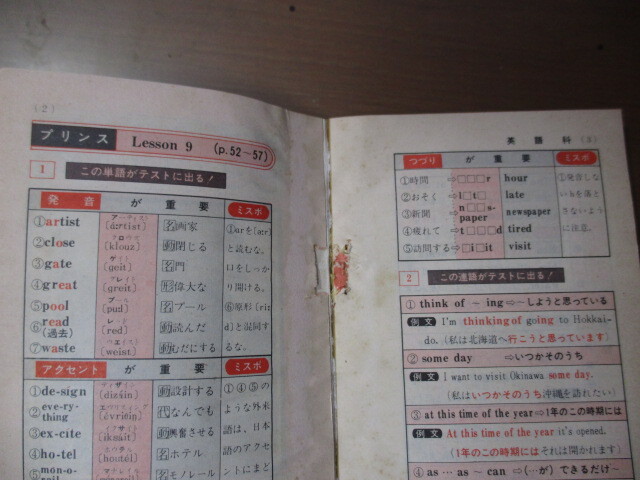 (2)
プリンス Lesson 9 (p.52~57)
1 この単語がテストに出る!
発音 が 重要 ミスポ
①artist 名画家
②close (klouz) 動閉じる
③gate (geit) 名門
④great (greit) 形偉大な
⑤pool (pu:l) 名プール
⑥read (過去) (red) 動読んだ
⑦waste (weist) 動むだにする
①arを
と読むな。
口をしっか
り開ける。
⑥原形(ri:
d)と混同す
るな。
アクセント が 重要 ミスポ
①de-sign (dizáin) 動設計する
②eve-ry-thing 代なんでも
③ex-cite (iksáit) 動興奮させる
④ho-tel (houtél) 名ホテル
⑤mon-o- 名モノレール
①④⑤の
ような外来
語は、日本
語のアクセ
ントにまど
英語科
つづり が 重要 ミスポ
①時間 ⇨□□□r hour
②おそく ⇨l□t□ late
③新聞 ⇨n□□s-paper newspaper
④疲れて ⇨t□□□d tired
⑤訪問する⇨□i□it visit
①発音しな
いhを落と
さないよう
に注意。
2 この連語がテストに出る!
①think of ~ ing⇨~しようと思っている
例文 I'm thinking of going to Hokkai-
do. (私は北海道へ行こうと思っています)
②some day ⇨いつかそのうち
例文 I want to visit Okinawa some day.
(私はいつかそのうち沖縄を訪れたい)
③at this time of the year⇨1年のこの時期には
例文 At this time of the year it's opened.
(1年のこの時期にはそれは開かれます)
④as … as ~ can ⇨(~が)できるだけ~